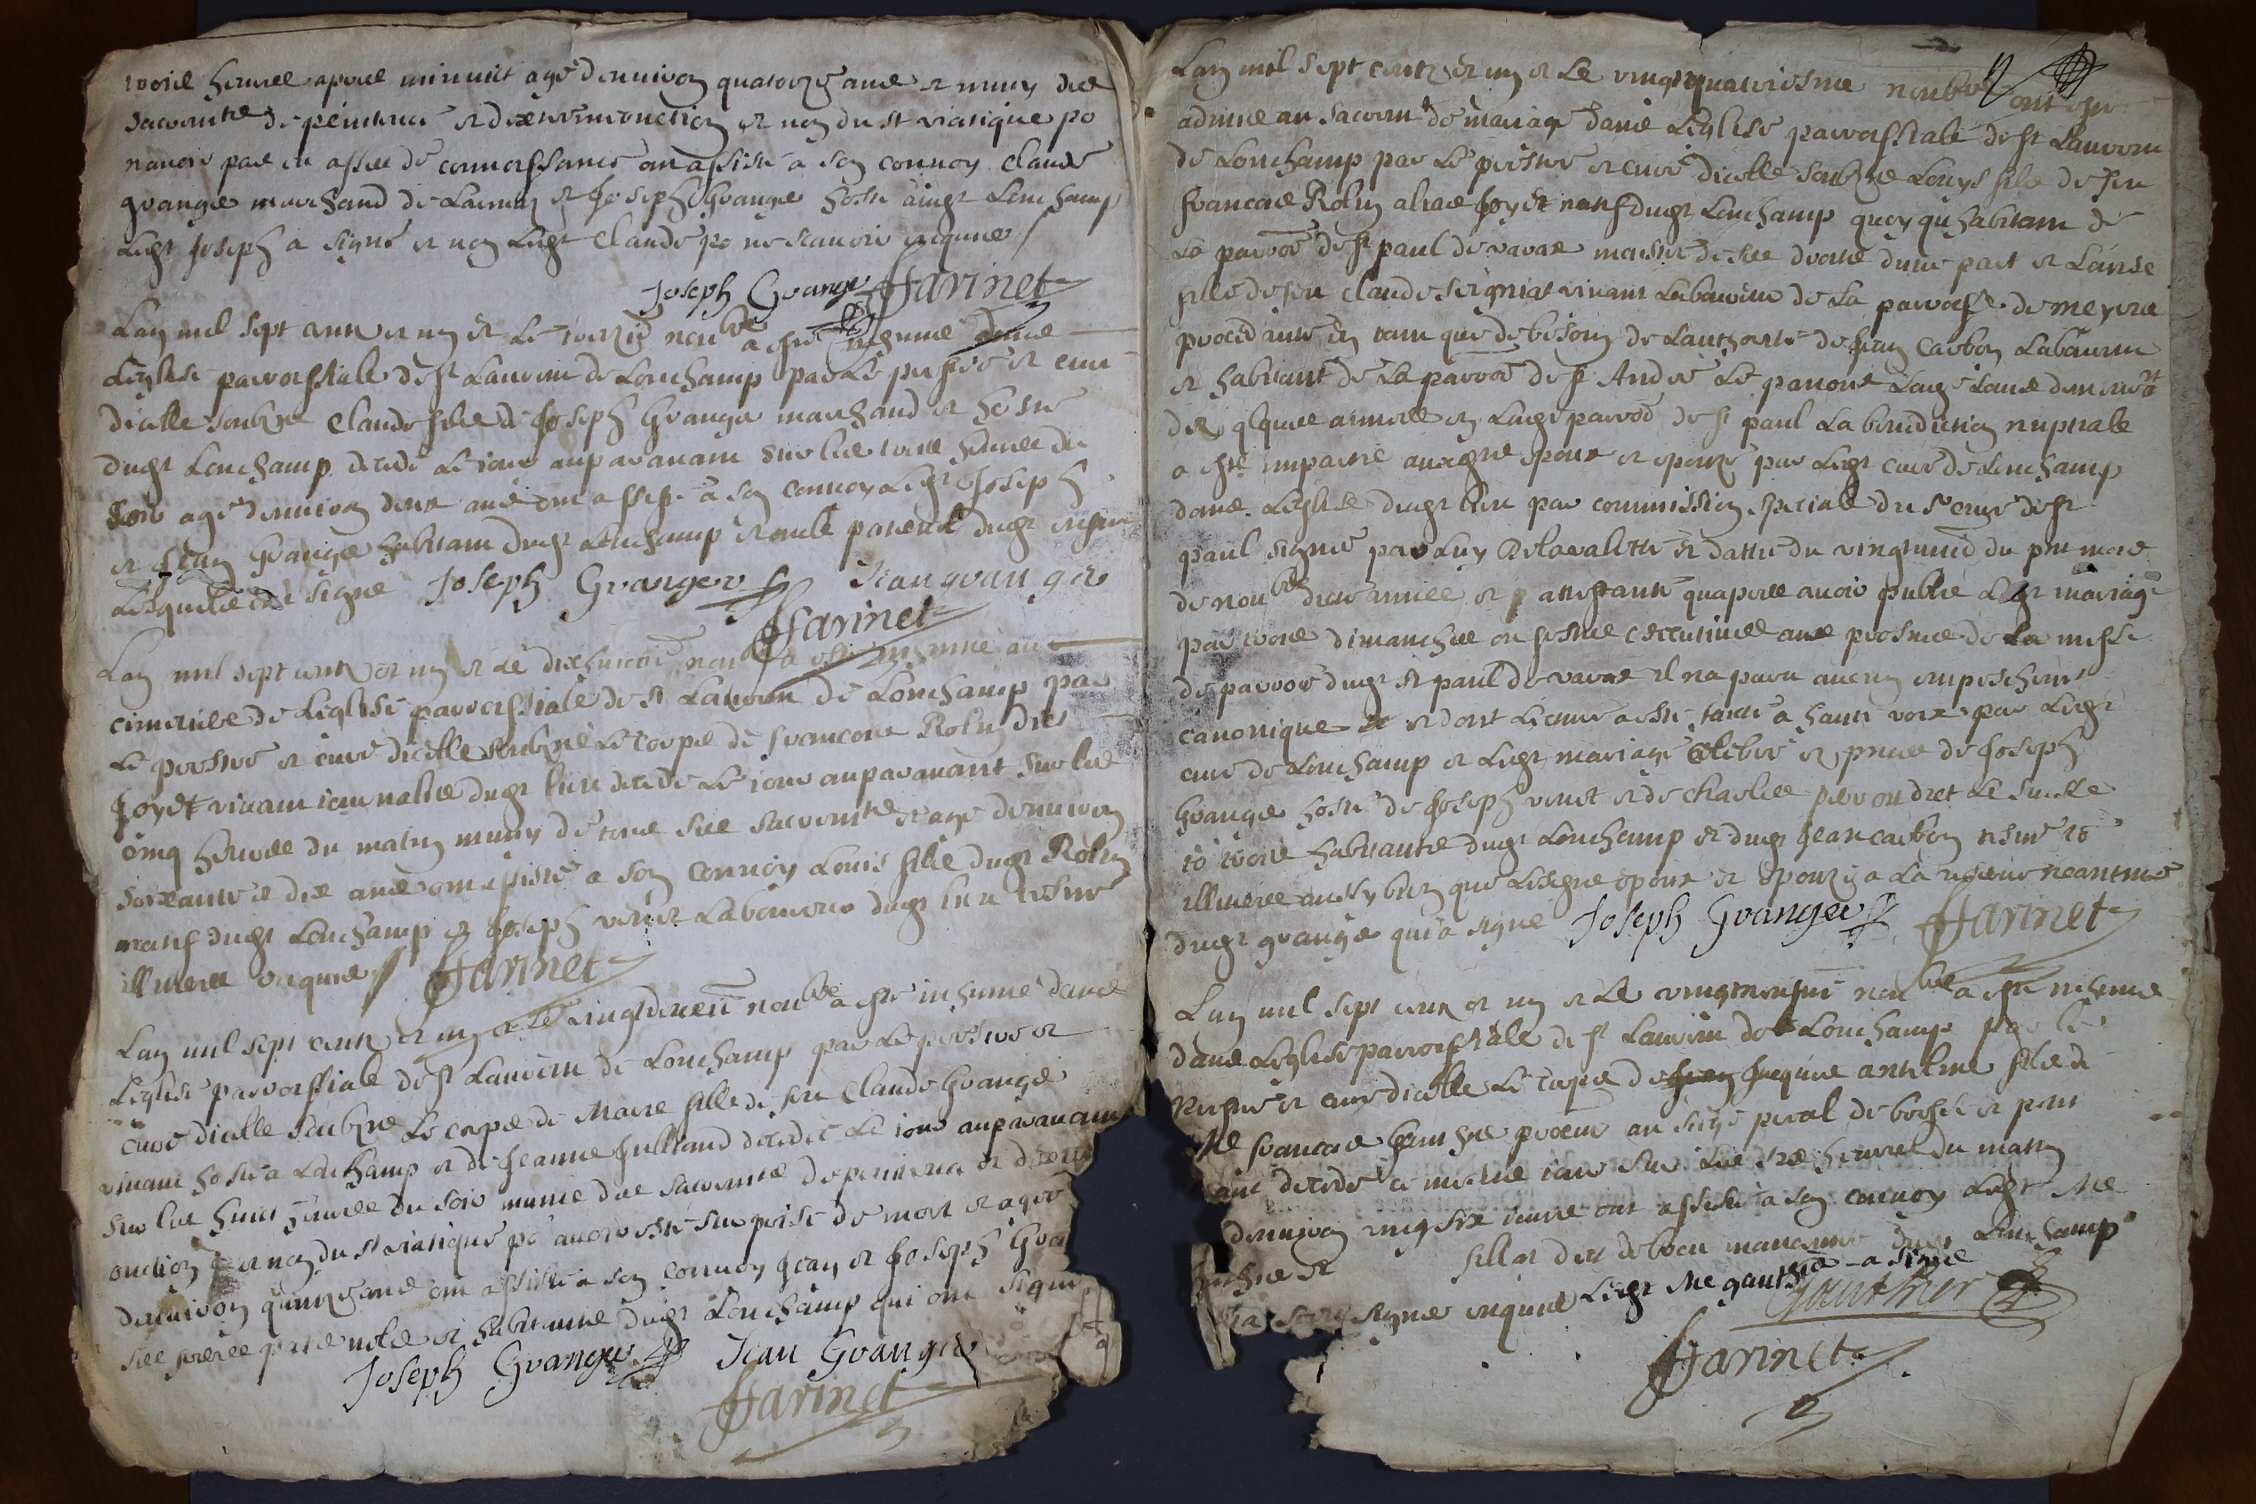 trois heures apres minuit agé denuiron quatorze ans et muny des
sacremts de penitence et dextremeonction et non du st viatique po
nauoir pas eu asses de connoissance ont assisté a son conuoy Claude
grange marchand de et Joseph Grange hoste audit Lonchamp
Ledt Joseph a signé et non Ledt Claude po ne scauoir enquis
Joseph Granger Farinet
Lan mil sept cents et un et Le noubre a esté inhumé dans
Leglise parroissiale de st Laurent de Lonchamp par Le prestre et curé
dicelle soubné Claude fils de Joseph Grange marchand et hoste
dudt Lonchamp decedé Le iour auparauant sur les trois heures du
soir agé denuiron deux ans ont assisté a son conuoy Ledt Joseph
et Jean Grange habitans dudt Lonchamp et oncle paternel dudt
Lesquels ont signé Joseph Granger Jean granger
Farinet
Lan mil sept cents et un et Le dixhuict noubre a esté inhumé au
cimetiere de Leglise parroissiale de st Laurent de Lonchamp par
Le prestre et curé dicelle soubné Le corps de francois Rolin dict
Joyet viuant iournalier dudt lieu decedé Le iour auparauant sur les
cinq heures du matin muny de tous ses sacremts et agé denuiron
soixante et dix ans ont assisté a son conuoy Louis fils dudt Rolin
natif dudt Lonchamp et Joseph veret Laboureur dudt lieu
illiteres enquis Farinet
Lan mil sept cents et un et Le vingtdeux noubre a esté inhumé dans
Leglise parroissiale de st Laurent de Lonchamp par Le prestre et
curé dicelle soubné Le corps de Marie fille de feu Claude Grange
viuant hoste a Lonchamp et de Jeanne Julliand decedée Le iour auparauant
sur les huict heures du soir munie des sacremts de penitence et
onction et non du st viatique po auoir esté surprise de mort et agée
denuiron quinze ans ont assisté a son conuoy Jean et Joseph
ses freres et habitants dudt Lonchamp qui ont signé
Joseph Granger Jean Granger
Farinet
Lan mil sept cents et un et Le vingtquatriesme noubre ont esté
admis au sacremt de mariage dans Leglise parroissiale de st Laurent
de Lonchamp par Le prestre et curé dicelle soubné Louys fils de feu
francois Rolin alias Joyet natif dudt Lonchamp quoy quhabitant de
La parroe de st paul de varax maistre de ses droits dune part et Louise
fille de feu Claude viuant Laboureur de La parroisse de meyria
procedante en tant que de besoin de Lauthorité de Jean Carbon Laboureur
et habitant de La parroe de st André Le panoux
de quelques années en Ladt parroe de st paul La benediction nuptiale
a esté impartie auxdts epoux et epouze par Ledt curé de Lonchamp
dans Leglise dudt lieu par commission speciale du sr curé de st
paul signée par Luy Delavalette et dattée du vingtunie du pnt mois
de noubre dicte année et attestante quapres auoir publié Ledt mariage
par trois dimanches ou festes consecutiues aux prosnes de La messe
de parroe dudt st paul de varax il na paru aucun empeschemt
canonique et dont Lecture a esté faicte a haute voix par Ledt
curé de Lonchamp et Ledt mariage celebré en pnce de Joseph
Grange hoste de Joseph veret et de charles perrondret
to trois habitants dudt Lonchamp et dudt Jean carbon
illiteres aussy bien que Lesdts epoux et epouze a La reserue neantmoins
dudt grange qui a signé Joseph Granger Farinet
Lan mil sept cents et un et Le vingtneufuie noubre a esté inhumé
dans Leglise parroissiale de st Laurent de Lonchamp par le
prestre et curé dicelle Le corps de Jacques antelme fils de
Me francois Gauthier procur au siege pnal de bresse et pnt
decedé ce mesme iour sur les six heures du matin
denuiron vingt six iours ont assisté a son conuoy Ledt Me
Gauthier et
signer enquis Ledt Me gauthier a signé
Gauthier
Farinet